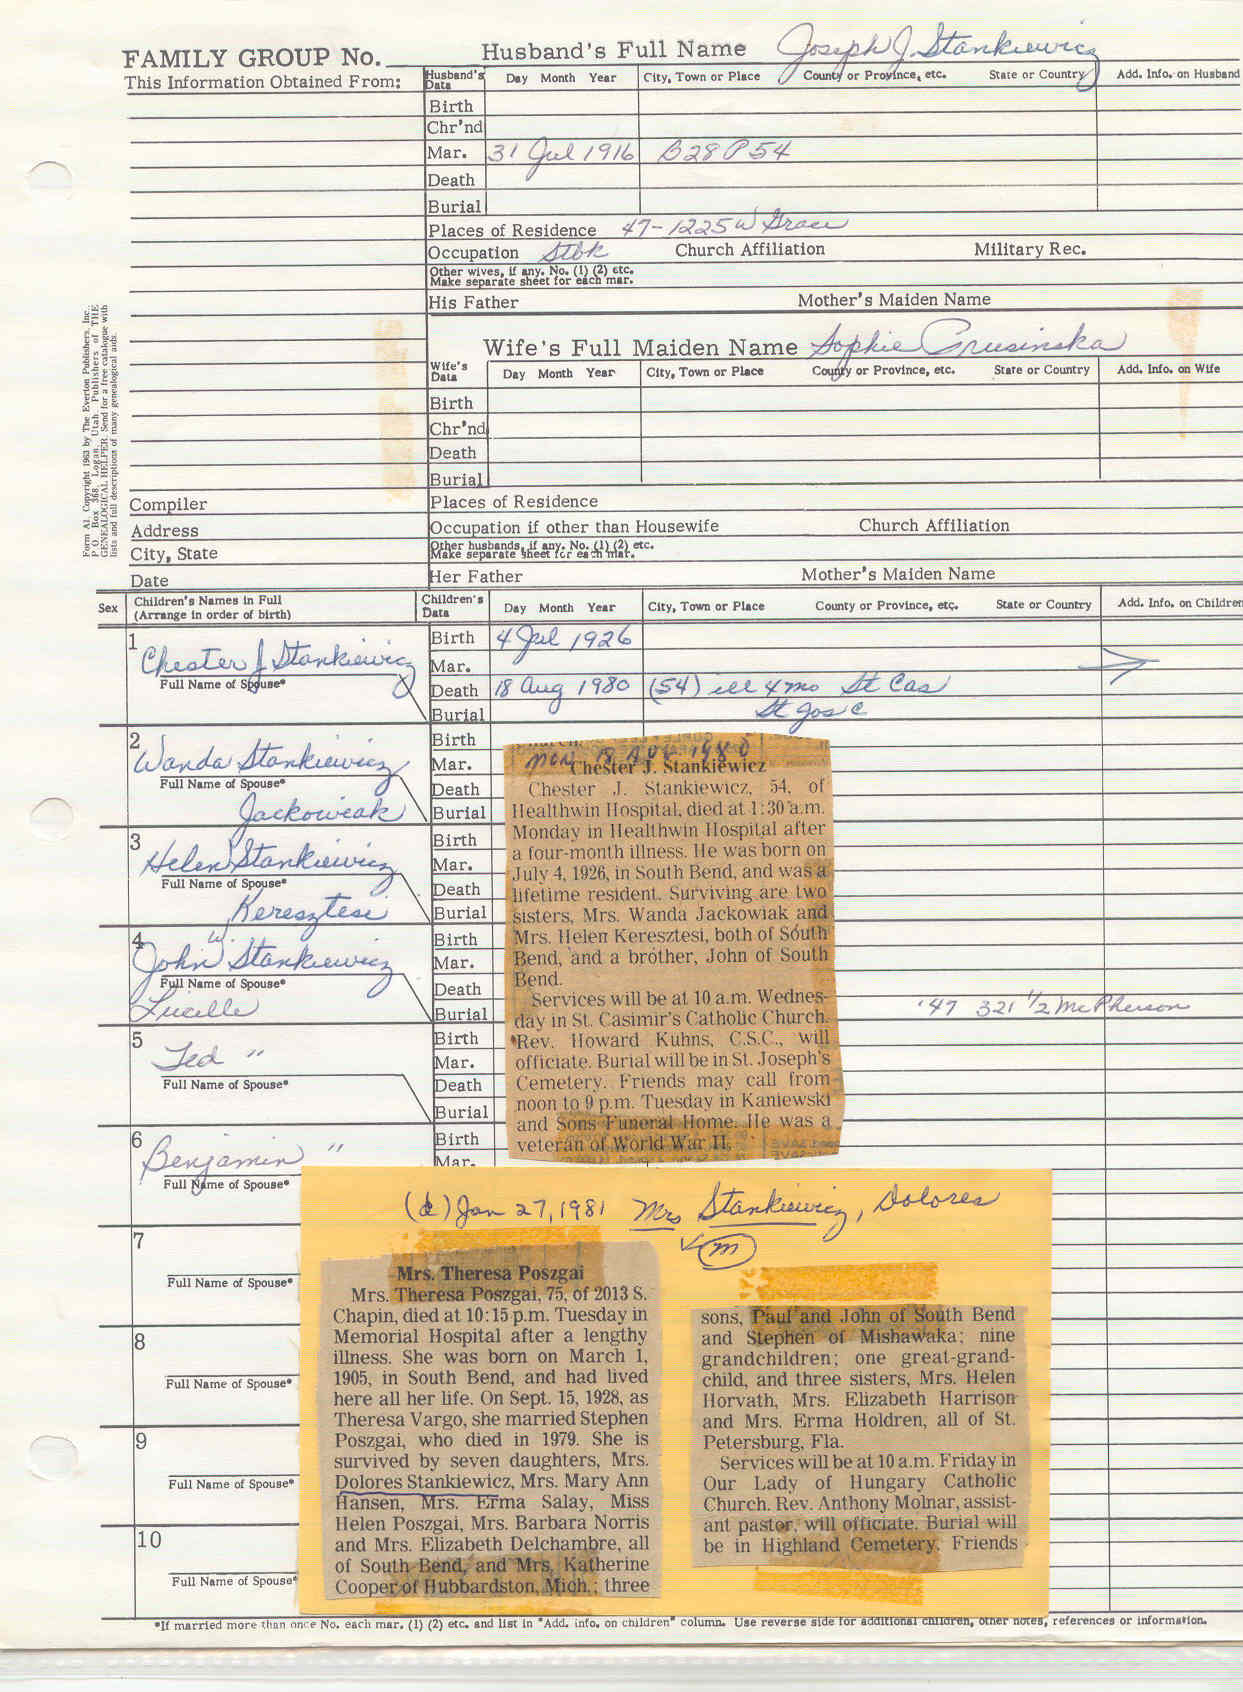 FAMILY GROUP No.
Husband's Full Name Joseph J. Stankiewicz
This Information Obtained From:
Husband's Data Day Month Year City, Town or Place County or Province, etc. State or Country Add. Info. on Husband
Birth
Chr'nd
Mar. 31 Jul 1916 B28 P54
Death
Burial
Places of Residence 47-1225 W Grace
Occupation Stbk Church Affiliation Military Rec.
Other wives, if any. No. (1) (2) etc.
Make separate sheet for each mar.
His Father Mother's Maiden Name
Form A1. Copyright 1963 by The Everton Publishers, Inc.
P.O. Box 368, Logan, Utah. Publishers of THE
GENEALOGICAL HELPER. Send for a free catalogue with
lists and full descriptions of many genealogical aids.
Wife's Full Maiden Name Sophie Prusinska
Wife's Data Day Month Year City, Town or Place County or Province, etc. State or Country Add. Info. on Wife
Birth
Chr'nd
Death
Burial
Compiler Places of Residence
Address Occupation if other than Housewife Church Affiliation
City, State Other husbands, if any. No. (1) (2) etc.
Make separate sheet for each mar.
Date Her Father Mother's Maiden Name
Sex Children's Names in Full
(Arrange in order of birth)
Children's Data Day Month Year City, Town or Place County or Province, etc. State or Country Add. Info. on Children
1 Birth 4 Jul 1926
Chester J Stankiewicz Mar.
Full Name of Spouse* Death 18 Aug 1980 (54) ill 4 mo St Cas
X Burial St Jos C
2 Birth
Wanda Stankiewicz Mar.
Full Name of Spouse* Death
Jackowiak Burial
3 Birth
Helen Stankiewicz Mar.
Full Name of Spouse* Death
Keresztesi Burial
4 Birth
John W Stankiewicz Mar.
Full Name of Spouse* Death
Lucille Burial '47 321 1/2 McPherson
5 Birth
Ted " Mar.
Full Name of Spouse* Death
Burial
6 Birth
Benjamin " Mar.
Full Name of Spouse*
7
Full Name of Spouse*
8
Full Name of Spouse*
9
Full Name of Spouse*
10
Full Name of Spouse*
Mon 18 Aug 1980
Chester J. Stankiewicz
Chester J. Stankiewicz, 54, of
Healthwin Hospital, died at 1:30 a.m.
Monday in Healthwin Hospital after
a four-month illness. He was born on
July 4, 1926, in South Bend, and was a
lifetime resident. Surviving are two
sisters, Mrs. Wanda Jackowiak and
Mrs. Helen Keresztesi, both of South
Bend, and a brother, John of South
Bend.
Services will be at 10 a.m. Wednes-
day in St. Casimir's Catholic Church.
Rev. Howard Kuhns, C.S.C., will
officiate. Burial will be in St. Joseph's
Cemetery. Friends may call from
noon to 9 p.m. Tuesday in Kaniewski
and Sons Funeral Home. He was a
veteran of World War II.
(d) Jan 27, 1981 Mrs Stankiewicz, Dolores
m
Mrs. Theresa Poszgai
Mrs. Theresa Poszgai, 75, of 2013 S.
Chapin, died at 10:15 p.m. Tuesday in
Memorial Hospital after a lengthy
illness. She was born on March 1,
1905, in South Bend, and had lived
here all her life. On Sept. 15, 1928, as
Theresa Vargo, she married Stephen
Poszgai, who died in 1979. She is
survived by seven daughters, Mrs.
Dolores Stankiewicz, Mrs. Mary Ann
Hansen, Mrs. Erma Salay, Miss
Helen Poszgai, Mrs. Barbara Norris
and Mrs. Elizabeth Delchambre, all
of South Bend, and Mrs. Katherine
Cooper of Hubbardston, Mich.; three
sons, Paul and John of South Bend
and Stephen of Mishawaka; nine
grandchildren; one great-grand-
child, and three sisters, Mrs. Helen
Horvath, Mrs. Elizabeth Harrison
and Mrs. Erma Holdren, all of St.
Petersburg, Fla.
Services will be at 10 a.m. Friday in
Our Lady of Hungary Catholic
Church. Rev. Anthony Molnar, assist-
ant pastor, will officiate. Burial will
be in Highland Cemetery. Friends
*If married more than once No. each mar. (1) (2) etc. and list in "Add. info. on children" column. Use reverse side for additional children, other notes, references or information.